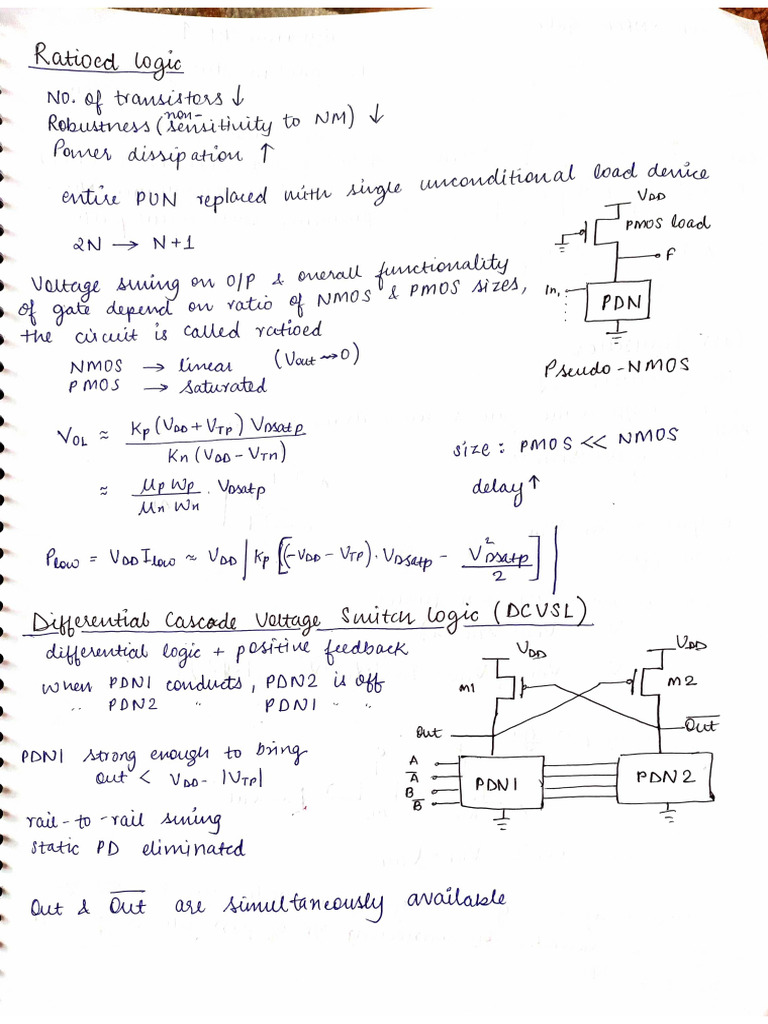 Ratioed logic
No. of transistors ↓
Robustness (non-sensitivity to NM) ↓
Power dissipation ↑
entire PUN replaced with single unconditional load device
2N → N+1
VDD
PMOS load
F
In,
PDN
Pseudo-NMOS
Voltage swing on O/P & overall functionality
of gate depend on ratio of NMOS & PMOS sizes,
the circuit is called ratioed
NMOS → linear (Vout → 0)
PMOS → saturated
VOL ≈ Kp (VDD + VTP) VDsatp / Kn (VDD - VTn)
≈ μp Wp / μn Wn . VDsatp
size : PMOS << NMOS
delay ↑
Plow = VDD Ilow ≈ VDD | Kp [(-VDD - VTP) . VDsatp - V²Dsatp / 2] |
Differential Cascade Voltage Switch Logic (DCVSL)
differential logic + positive feedback
when PDN1 conducts, PDN2 is off
" PDN2 " PDN1 " "
PDN1 strong enough to bring
out < VDD - |VTP|
rail-to-rail swing
static PD eliminated
VDD
VDD
M1
M2
Out
O̅u̅t̅
A
A̅
B
B̅
PDN1
PDN2
Out & O̅u̅t̅ are simultaneously available